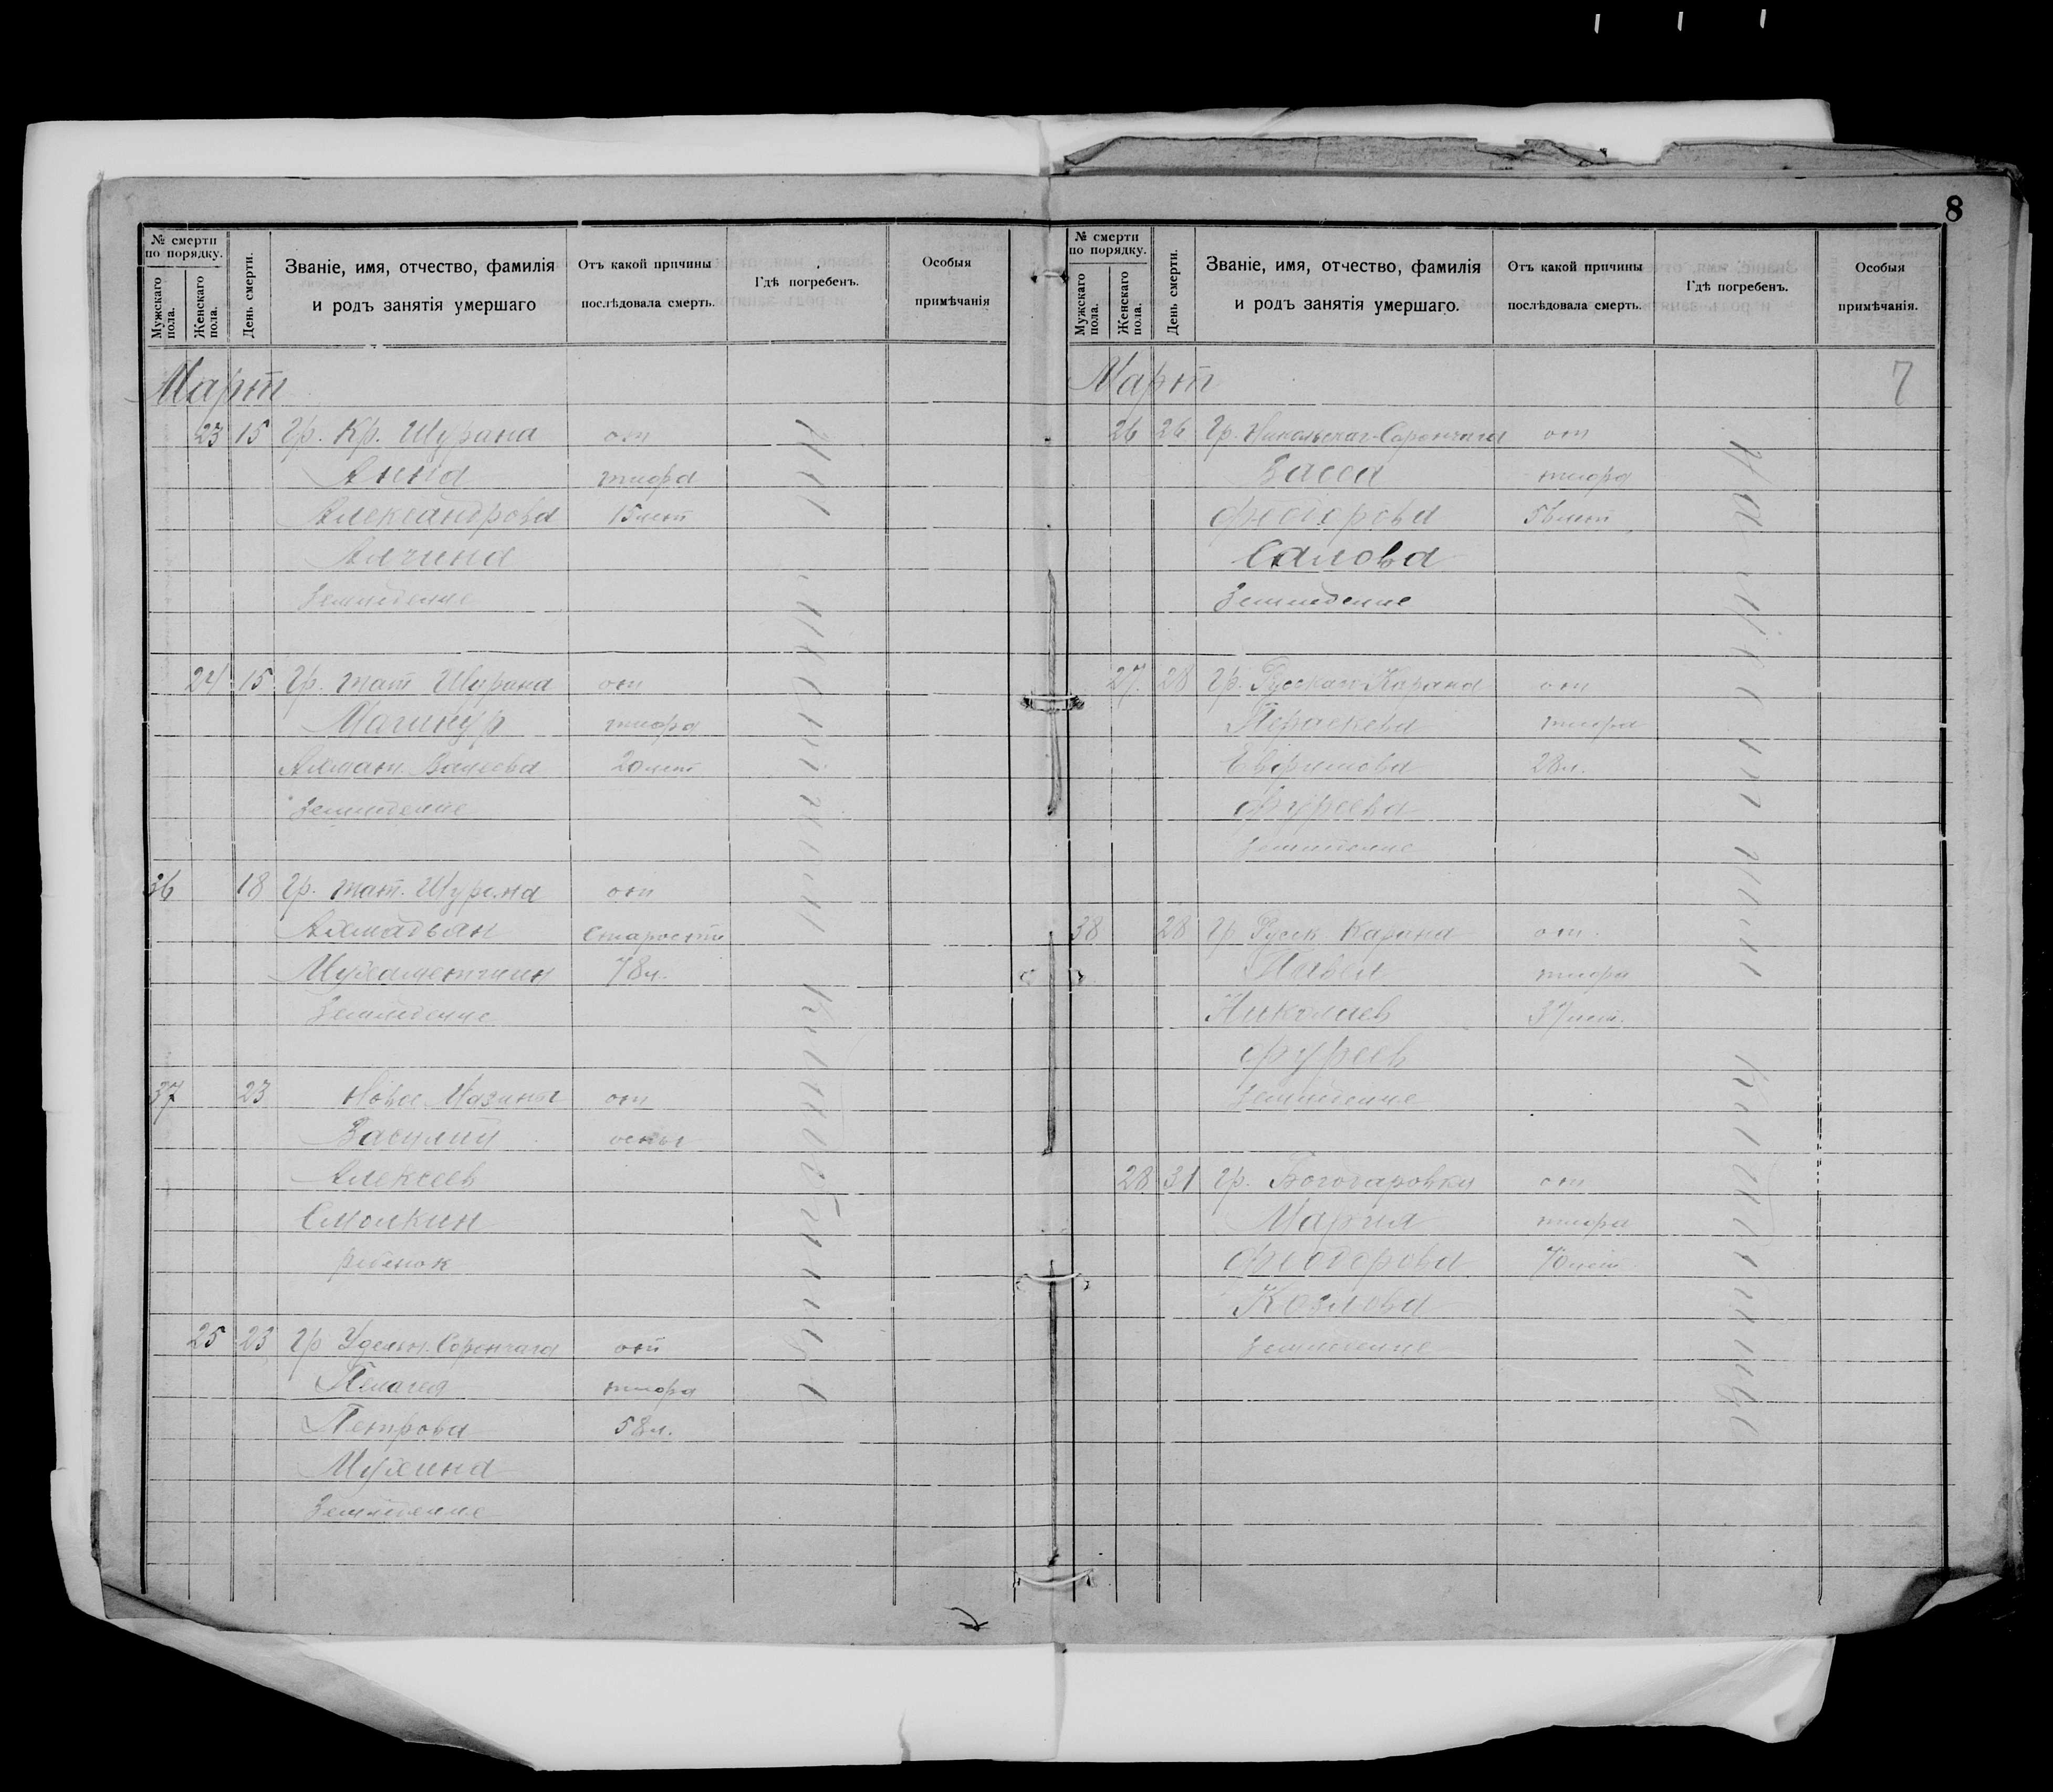 8
№ смерти
по порядку.
Мужскаго пола.
Женскаго пола.
День смерти.
Званіе, имя, отчество, фамилія
и родъ занятія умершаго
Отъ какой причины
послѣдовала смерть.
Гдѣ погребенъ.
Особыя
примѣчанія
Март
23 15 Гр. Кр. Шурана от
Анна тифа
Александрова 15 лет
Лячина
Земледелие
24 15 Гр. тат Шурана от
Магинур тифа
Ахмат. Валеева 20 лет
Земледелие
36 18 Гр. тат. Шурана от
Ахмадьян старости
Мухаметшин 78 л.
Земледелие
37 23 Новое Мазины от
Василий оспы
Алексеев
Смолкин
ребенок
25 23 Гр Удельн. Сарончага от
Пелагея тифа
Петрова 58 л.
Мухина
Земледелие
На местном кладбище
№ смерти
по порядку.
Мужскаго пола.
Женскаго пола.
День смерти.
Званіе, имя, отчество, фамилія
и родъ занятія умершаго.
Отъ какой причины
послѣдовала смерть.
Гдѣ погребенъ.
Особыя
примѣчанія.
Март 7
26 26 Гр. Никольскаг Саренчага от
Васса тифа
Феодорова 56 лет
Салова
Земледелие
27. 28 Гр. Русскаг Карана от
Параскева тифа
Евфимова 28 л.
Фуреева
Земледелие
38 28 Гр Русск Карана от
Павел тифа
Николаев 37 лет.
Фуреев
Земледелие
28 31 Гр. Богодаровки от
Мария тифа
Феодорова 70 лет
Козлова
Земледелие
На местном кладбище